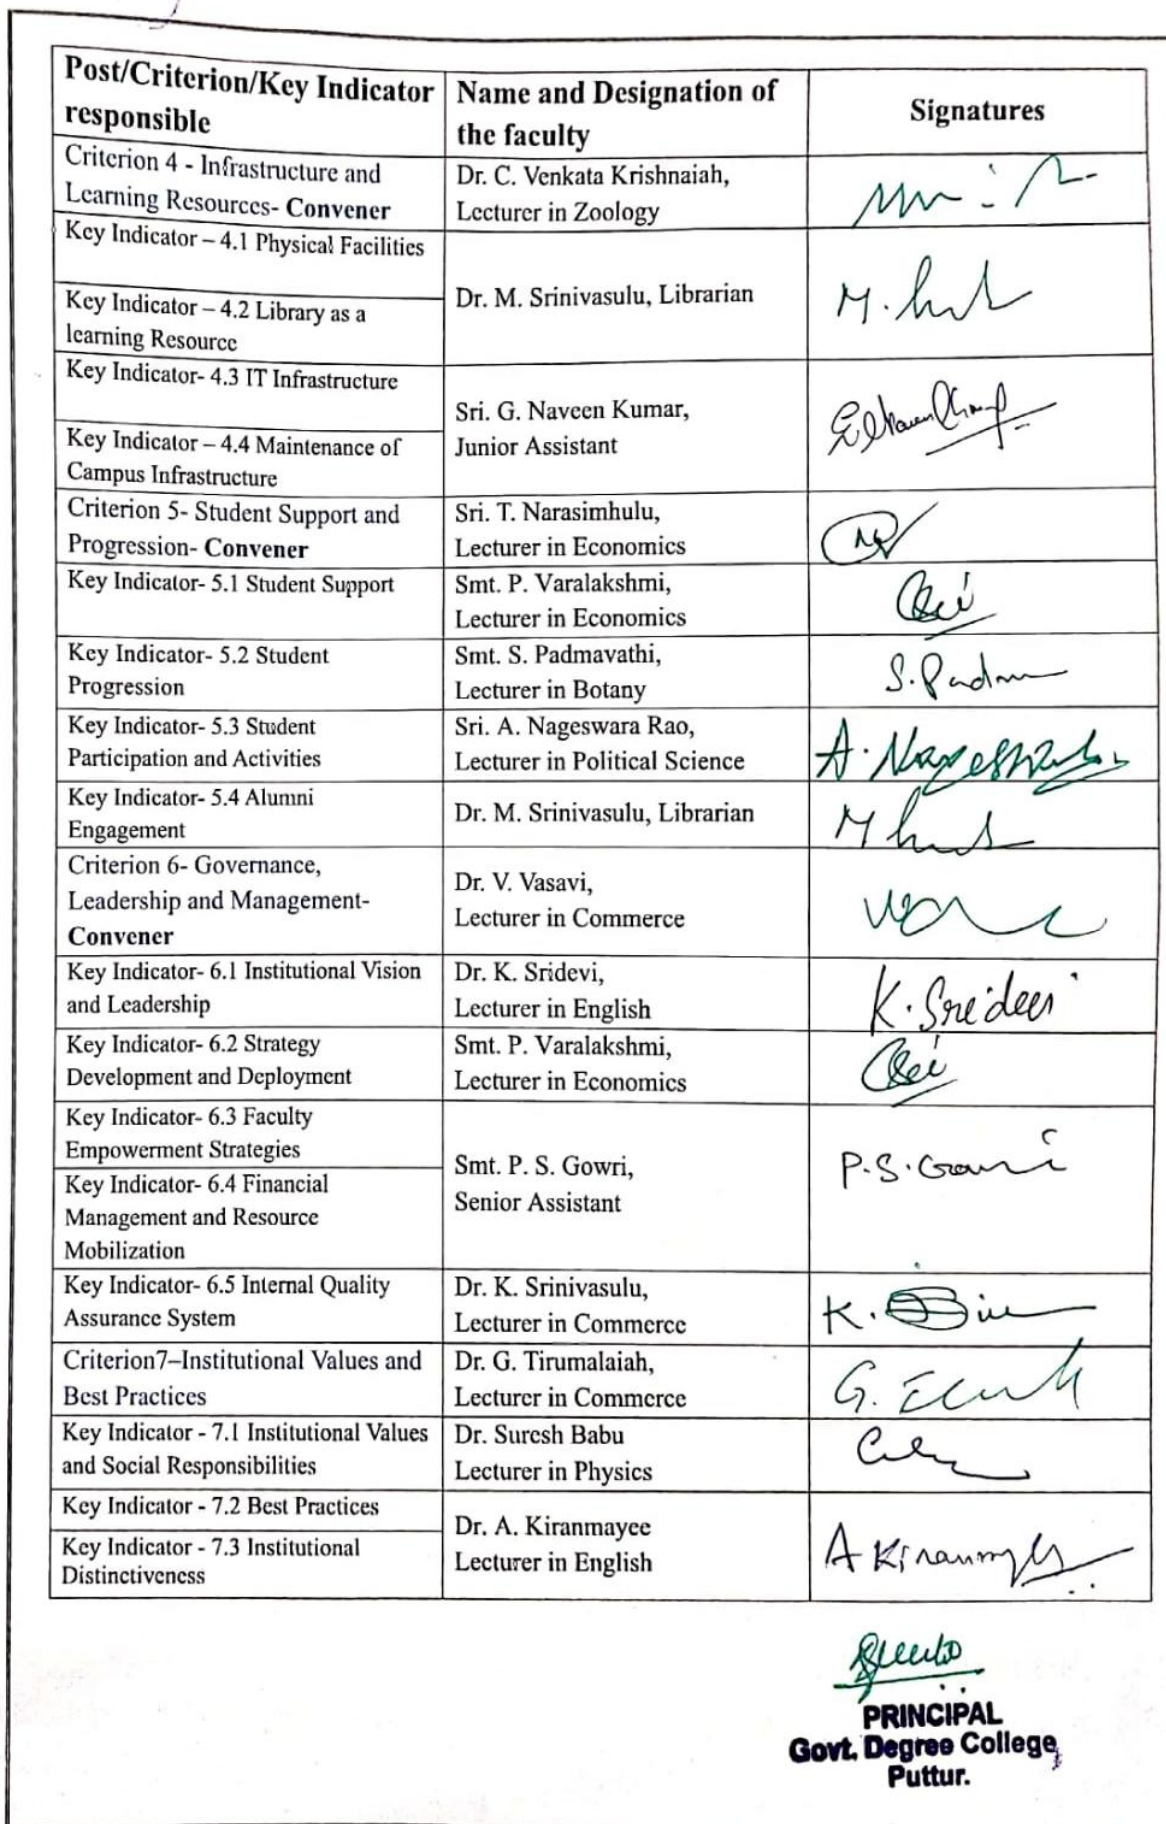 Post/Criterion/Key Indicator
responsible
Name and Designation of
the faculty
Signatures
Criterion 4 - Infrastructure and
Learning Resources- Convener
Dr. C. Venkata Krishnaiah,
Lecturer in Zoology
Key Indicator – 4.1 Physical Facilities
Key Indicator – 4.2 Library as a
learning Resource
Dr. M. Srinivasulu, Librarian
Key Indicator- 4.3 IT Infrastructure
Key Indicator – 4.4 Maintenance of
Campus Infrastructure
Sri. G. Naveen Kumar,
Junior Assistant
Criterion 5- Student Support and
Progression- Convener
Sri. T. Narasimhulu,
Lecturer in Economics
Key Indicator- 5.1 Student Support
Smt. P. Varalakshmi,
Lecturer in Economics
Key Indicator- 5.2 Student
Progression
Smt. S. Padmavathi,
Lecturer in Botany
Key Indicator- 5.3 Student
Participation and Activities
Sri. A. Nageswara Rao,
Lecturer in Political Science
Key Indicator- 5.4 Alumni
Engagement
Dr. M. Srinivasulu, Librarian
Criterion 6- Governance,
Leadership and Management-
Convener
Dr. V. Vasavi,
Lecturer in Commerce
Key Indicator- 6.1 Institutional Vision
and Leadership
Dr. K. Sridevi,
Lecturer in English
K. Sridevi
Key Indicator- 6.2 Strategy
Development and Deployment
Smt. P. Varalakshmi,
Lecturer in Economics
Key Indicator- 6.3 Faculty
Empowerment Strategies
Key Indicator- 6.4 Financial
Management and Resource
Mobilization
Smt. P. S. Gowri,
Senior Assistant
P.S. Gowri
Key Indicator- 6.5 Internal Quality
Assurance System
Dr. K. Srinivasulu,
Lecturer in Commerce
Criterion7–Institutional Values and
Best Practices
Dr. G. Tirumalaiah,
Lecturer in Commerce
Key Indicator - 7.1 Institutional Values
and Social Responsibilities
Dr. Suresh Babu
Lecturer in Physics
Key Indicator - 7.2 Best Practices
Key Indicator - 7.3 Institutional
Distinctiveness
Dr. A. Kiranmayee
Lecturer in English
PRINCIPAL
Govt. Degree College,
Puttur.